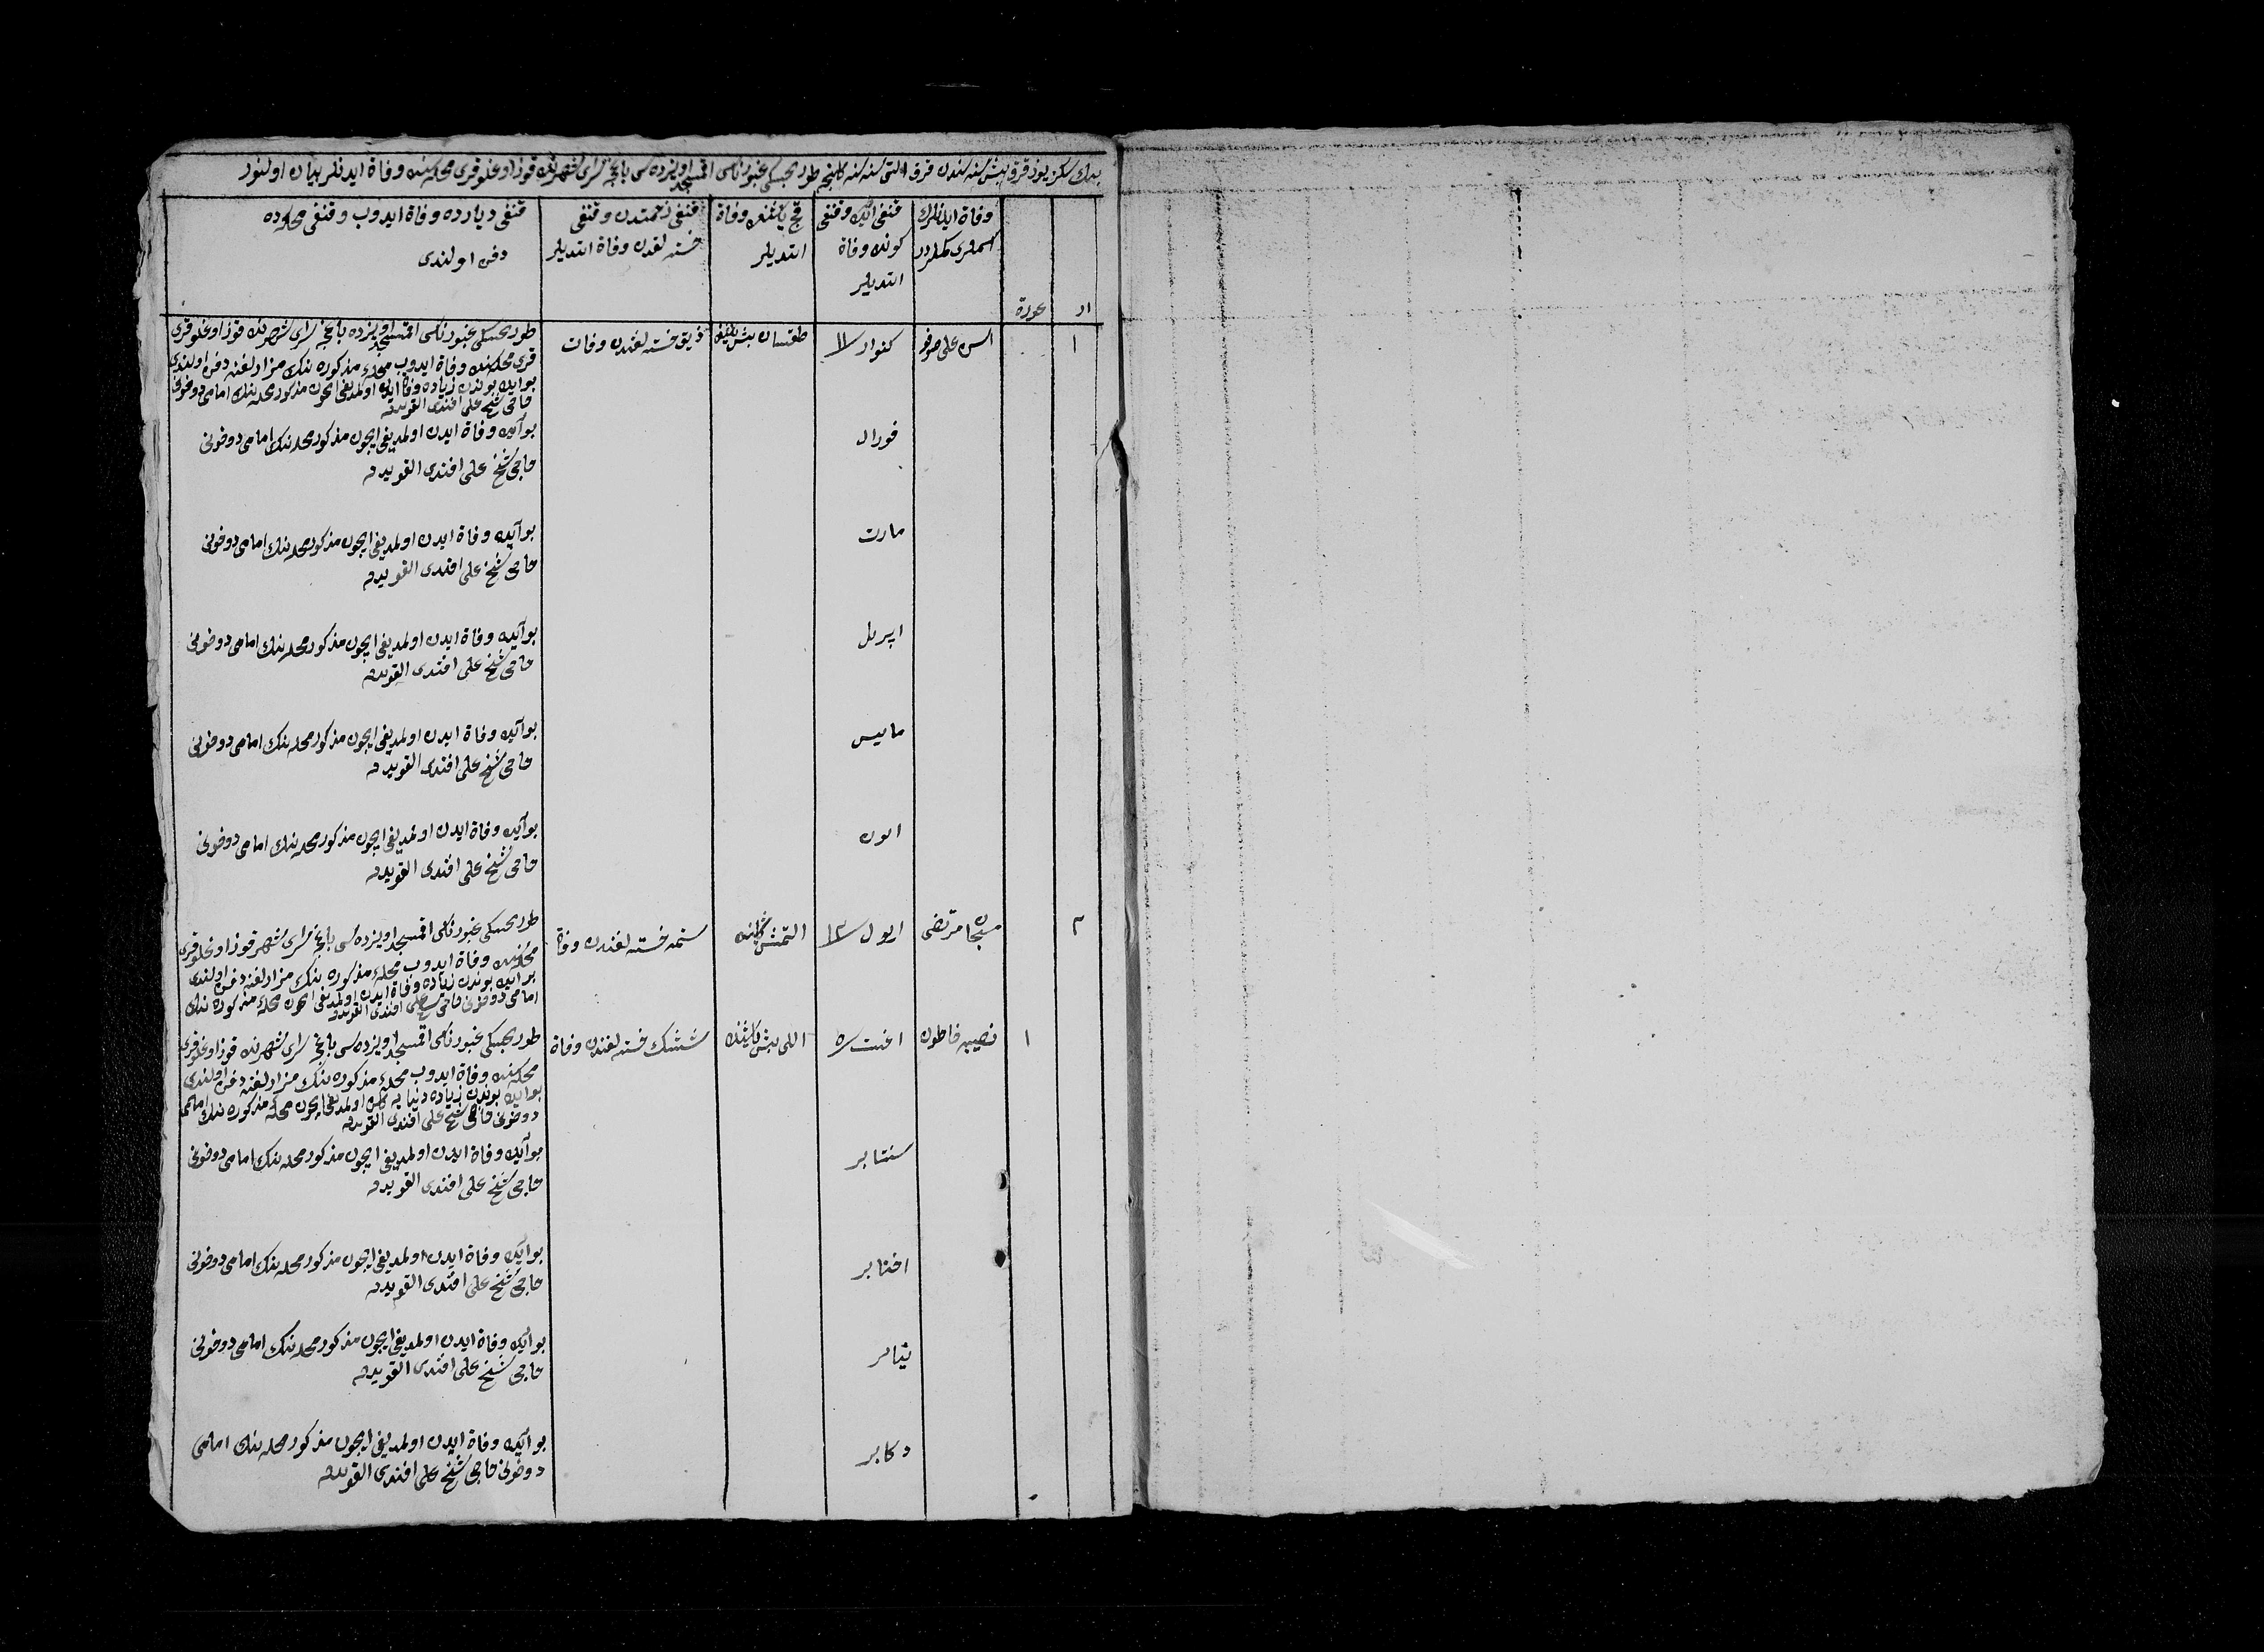 بیك سكز یوز قرق بش سنه سندن قرق التی سنه سنه كلنجه طوریچسكی غبورناسی اقمسجد اویزده سی باغچه سرای شهرنك قوز اوغلو قری محله سنده وفاة ایدنلر بیان اولنور
ار
عورة
وفاة ایدنلرك
اسملری كملردر
قنغی آیده وقنغی
كونده وفاة
ایتدیلر
قچ یاشنده وفاة
ایتدیلر
قنغی زحمتدن وقنغی
خسته لقدن وفاة ایتدیلر
قنغی دیارده وفاة ایدوب وقنغی محلده
دفن اولندی
١
علی
كنوار ١١
طقسان بش یاشنده
ذیق خسته لغندن وفات
طوریچسكی غبورناسی اقمسجد اویزده باغچه سرای شهرنك قوز اوغلو قری
قری محله سنده وفاة ایدوب محلهء مذكوره نك مزارلغنه دفن اولندی
بو آیده بوندن زیاده وفاة ایدن اولمدیغی ایچون مذكور محله نك امامی دوخونی
حاجی شیخ علی افندی القویدم
فورال
بو آیده وفاة ایدن اولمدیغی ایچون مذكور محله نك امامی دوخونی
حاجی شیخ علی افندی القویدم
مارت
بو آیده وفاة ایدن اولمدیغی ایچون مذكور محله نك امامی دوخونی
حاجی شیخ علی افندی القویدم
اپریل
بو آیده وفاة ایدن اولمدیغی ایچون مذكور محله نك امامی دوخونی
حاجی شیخ علی افندی القویدم
مایس
بو آیده وفاة ایدن اولمدیغی ایچون مذكور محله نك امامی دوخونی
حاجی شیخ علی افندی القویدم
ایون
بو آیده وفاة ایدن اولمدیغی ایچون مذكور محله نك امامی دوخونی
حاجی شیخ علی افندی القویدم
٢
مرتضی
ایول ١٣
التمش یاشنده
ستمه خسته لغندن وفاة
طوریچسكی غبورناسی اقمسجد اویزده سی باغچه سرای شهر قوز اوغلو قری
محله سنده وفاة ایدوب محلهء مذكوره نك مزارلغنه دفن اولندی
بو آیده بوندن زیاده وفاة ایدن اولمدیغی ایچون محلهء مذكوره نك
امامی دوخونی حاجی شیخ علی افندی القویدم
١
نصیبه خاطون
اغست ٥
اللی بش یاشنده
ششك خسته لغندن وفاة
طوریچسكی غبورناسی اقمسجد اویزده سی باغچه سرای شهرنده قوز اوغلو قری
محله سنده وفاة ایدوب محلهء مذكوره نك مزارلغنه دفن اولندی
بو آیده بوندن زیاده دنیا یه كلن اولمدیغی ایچون محلهء مذكوره نك امامی
دوخونی حاجی شیخ علی افندی القویدم
سنتابر
بو آیده وفاة ایدن اولمدیغی ایچون مذكور محله نك امامی دوخونی
حاجی شیخ علی افندی القویدم
اختابر
بو آیده وفاة ایدن اولمدیغی ایچون مذكور محله نك امامی دوخونی
حاجی شیخ علی افندی القویدم
نیابر
بو آیده وفاة ایدن اولمدیغی ایچون مذكور محله نك امامی دوخونی
حاجی شیخ علی افندی القویدم
دكابر
بو آیده وفاة ایدن اولمدیغی ایچون مذكور محله نك امامی
دوخونی حاجی شیخ علی افندی القویدم